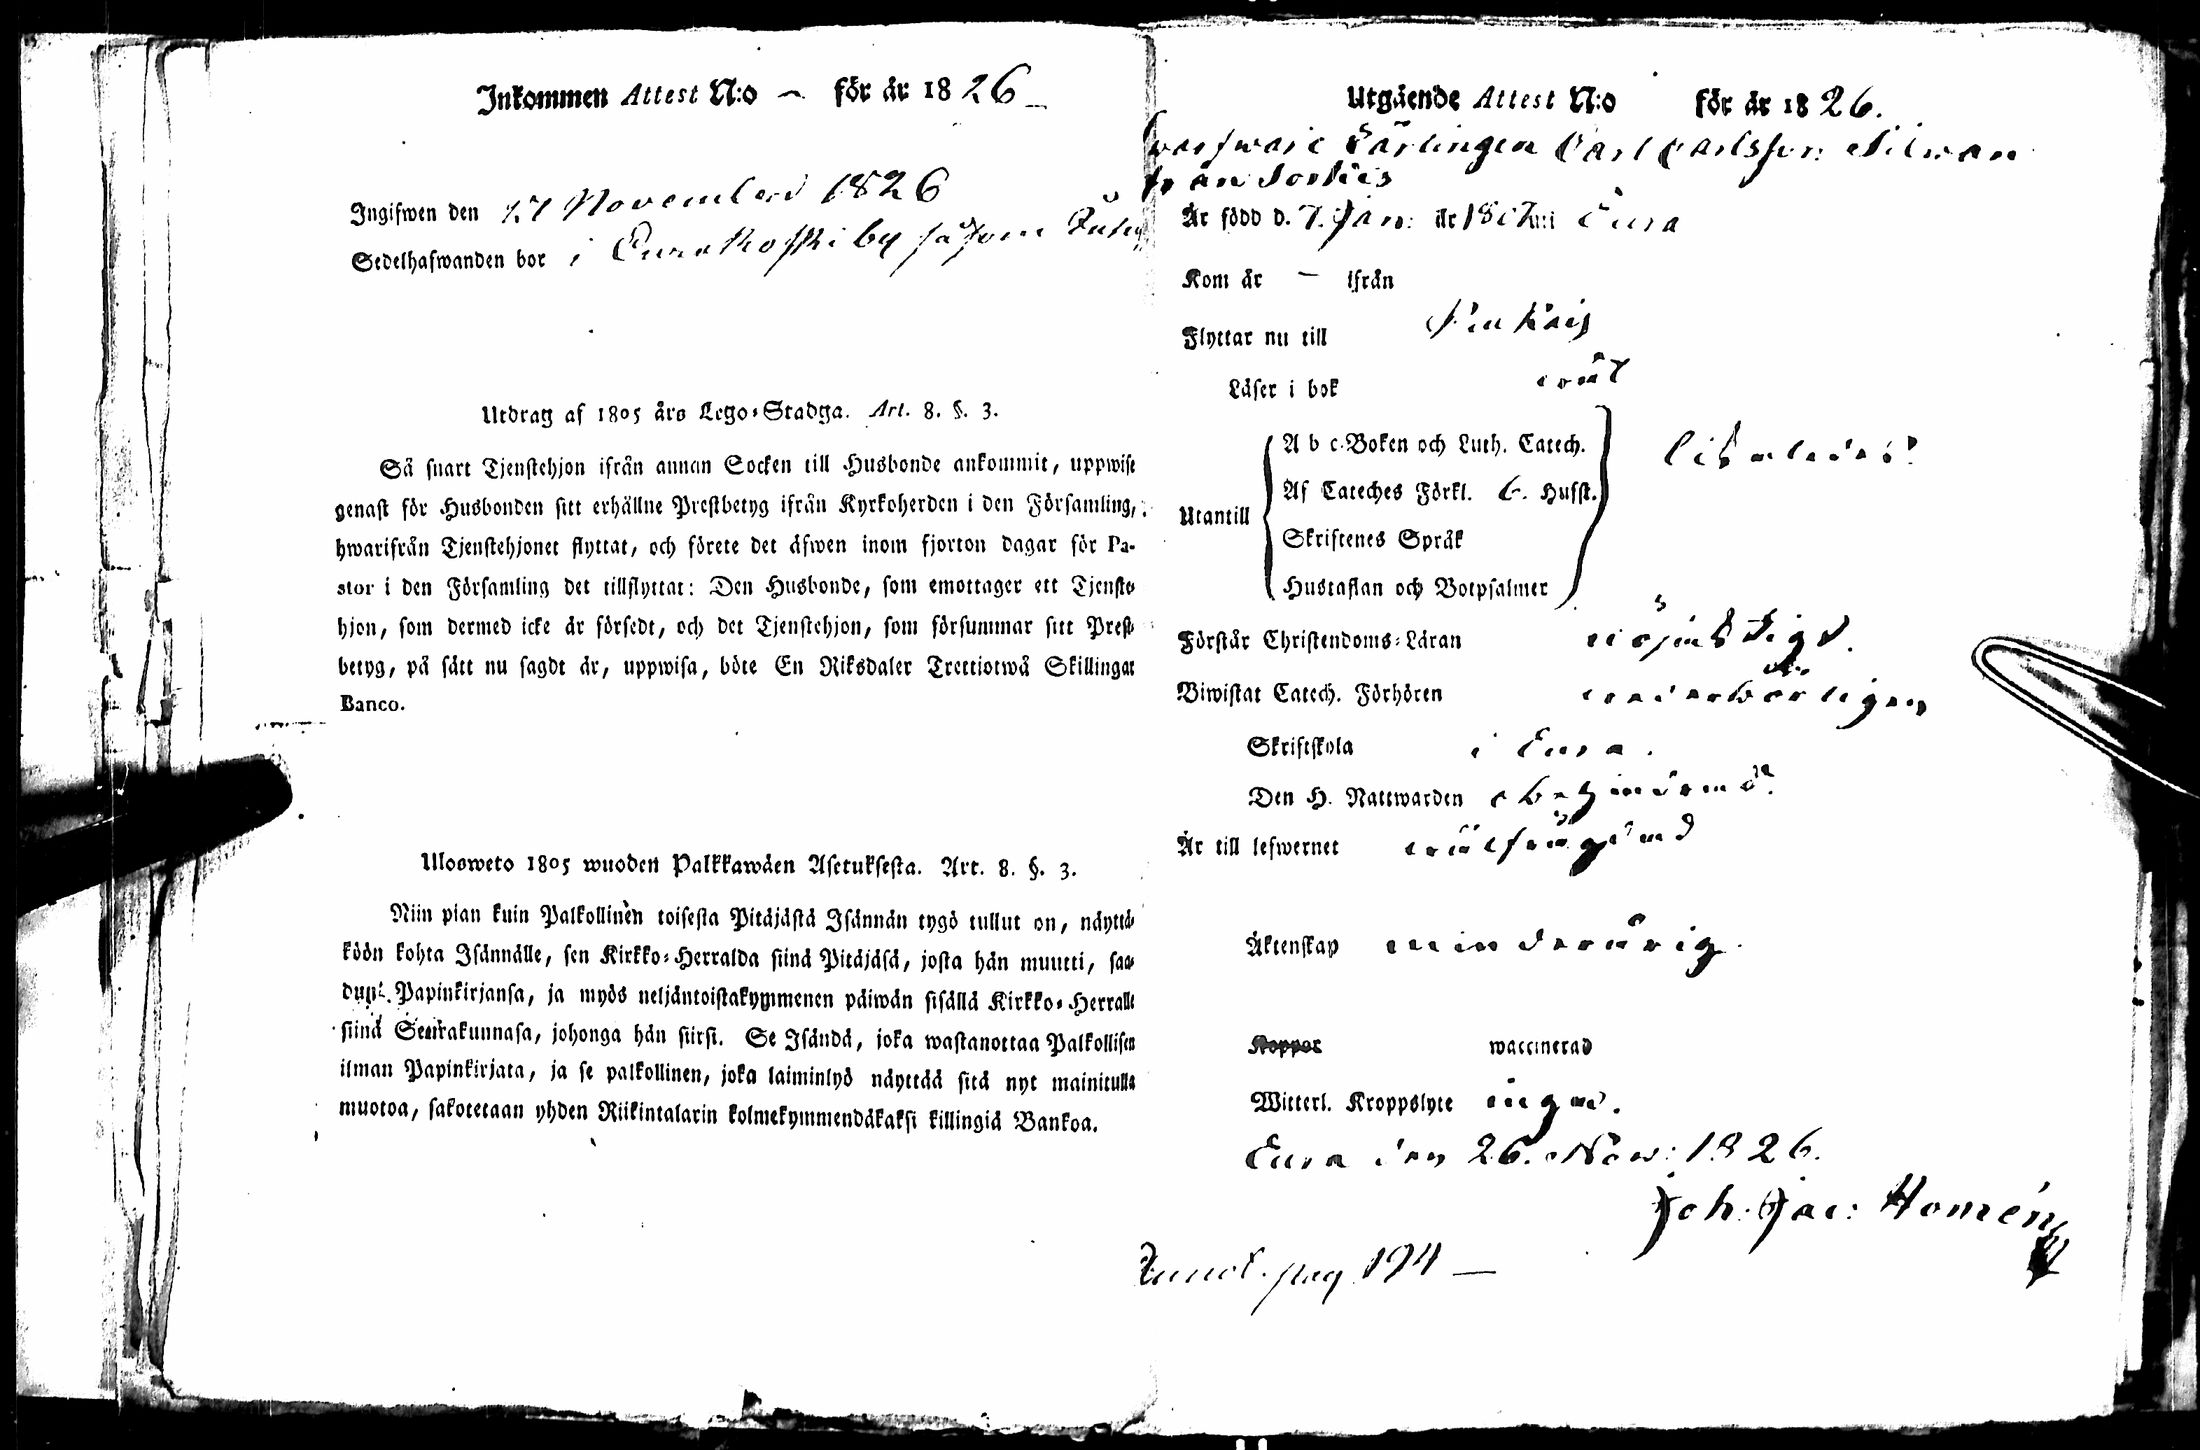 Inkommen Attest N:o — för år 1826
Ingifwen den 27 November 1826
Sedelhafwanden bor i Eurakoski by såsom
Utdrag af 1805 års Lego-Stadga. Art. 8. §. 3.
Så snart Tjenstehjon ifrån annan Socken till Husbonde ankommit, uppwise
genast för Husbonden sitt erhållne Prestbetyg ifrån Kyrkoherden i den Församling,
hwarifrån Tjenstehjonet flyttat, och förete det äfwen inom fjorton dagar för Pa-
stor i den Församling det tillflyttat: Den Husbonde, som emottager ett Tjenste-
hjon, som dermed icke är försedt, och det Tjenstehjon, som försummar sitt Prest-
betyg, på sätt nu sagdt är, uppwisa, böte En Riksdaler Trettiotwå Skillingar
Banco.
Ulosweto 1805 wuoden Palkkawäen Asetuksesta. Art. 8. §. 3.
Niin pian kuin Palkollinen toisesta Pitäjästä Isännän tygö tullut on, näyttä-
köön kohta Isännälle, sen Kirkko-Herralda siinä Pitäjäsä, josta hän muutti, saa-
dun Papinkirjansa, ja myös neljäntoistakymmenen päiwän sisällä Kirkko-Herralle
siinä Seurakunnasa, johonga hän siirsi. Se Isändä, joka wastanottaa Palkollisen
ilman Papinkirjata, ja se palkollinen, joka laiminlyö näyttää sitä nyt mainitulla
muotoa, sakotetaan yhden Riikintalarin kolmekymmendäkaksi killingiä Bankoa.
Utgående Attest N:o för år 1826.
Carl Carlsson
från
Är född d. 7. Jan: år 1807 uti Eura
Kom år — ifrån
Flyttar nu till
Läser i bok wäl
Utantill
A b c-Boken och Luth. Catech. likaledes
Af Cateches Förkl. 6. Husst.
Skriftenes Språk
Hustaflan och Botpsalmer
Förstår Christendoms-Läran nöjaktigt.
Biwistat Catech. Förhören wederbörligen
Skriftskola i Eura.
Den H. Nattwarden obehindrad
Är till lefwernet wälfrägdad
Äktenskap minderårig.
Koppor waccinerad
Witterl. Kroppslyte inga.
Eura den 26. Nov: 1826.
Joh. Jac: Homén
pag 194 —